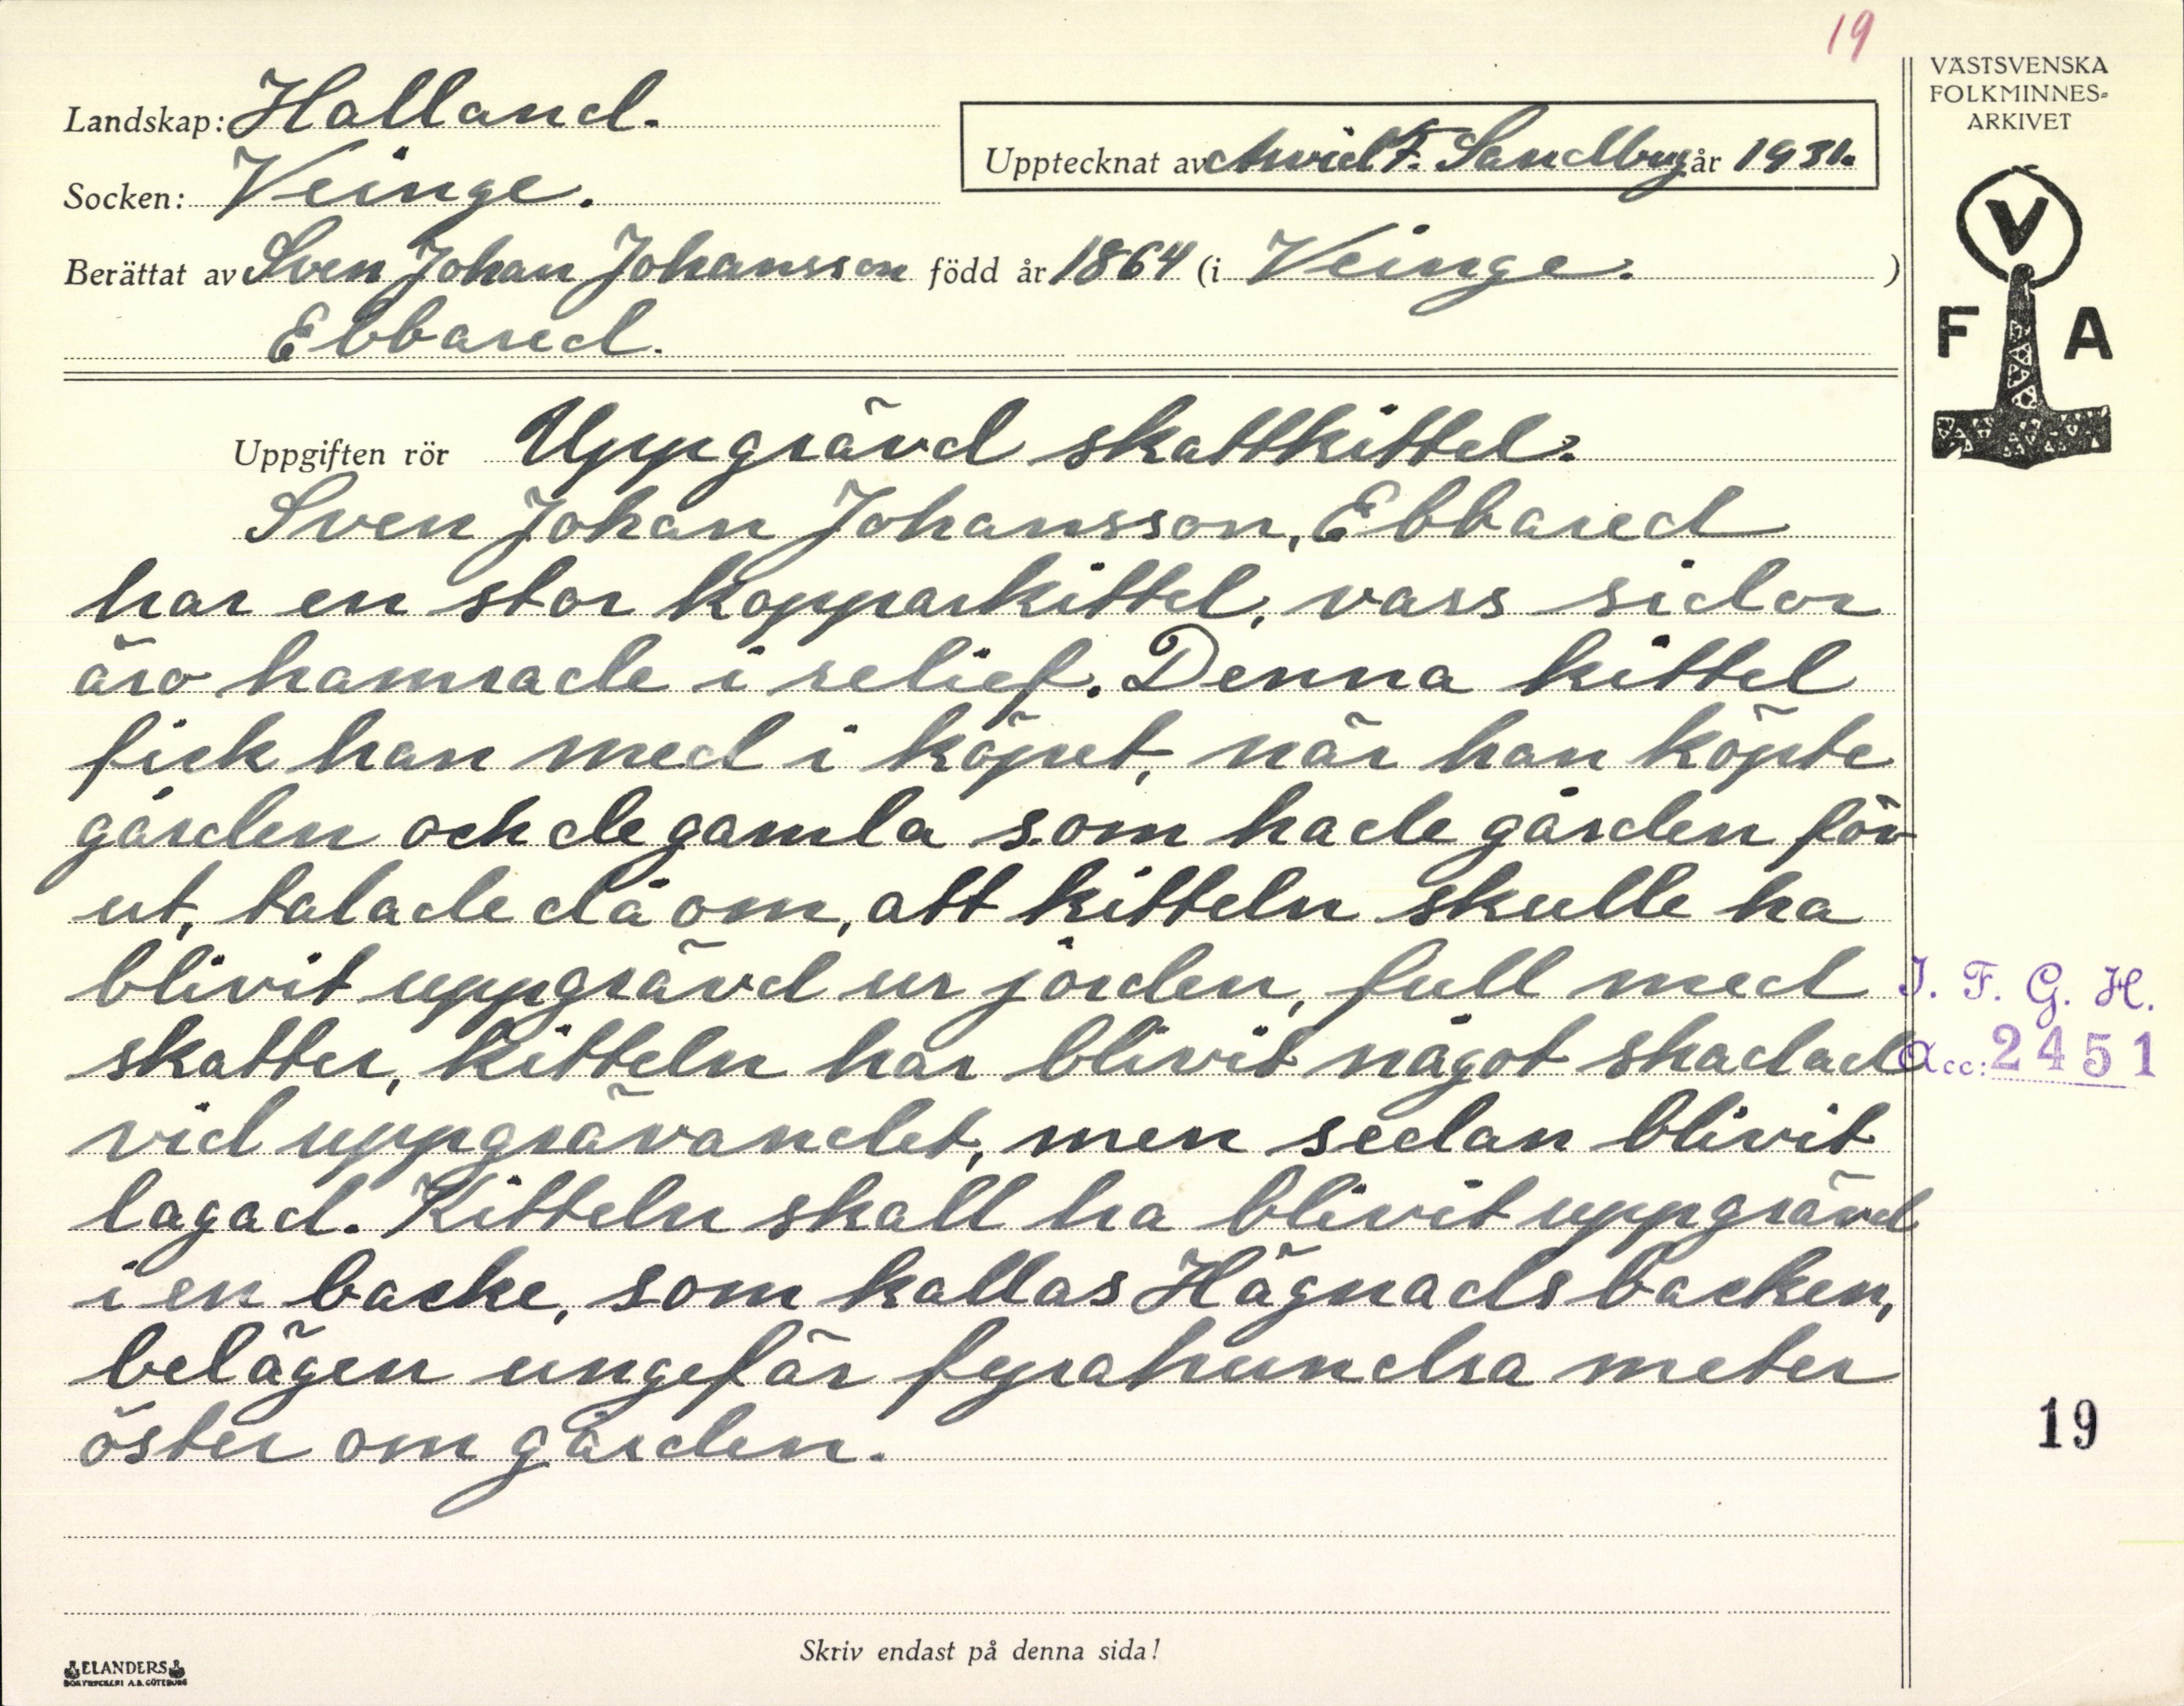 19
VÄSTSVENSKA
FOLKMINNES-
ARKIVET
Landskap: Halland.
Upptecknat av Arvid F. Sandbug år 1931.
Socken: Veinge.
Berättat av Sven Johan Johansson född år 1864 (i Veinge. )
Ebbared.
V
F A
Uppgiften rör Uppgrävd skattkittel.
Sven Johan Johansson, Ebbared
har en stor kopparkittel, vars sidor
äro hamrade i relief. Denna kittel
fick han med i köpet, när han köpte
gården och de gamla som hade gården för
ut, talade då om, att kitteln skulle ha
blivit uppgrävd ur jorden, full med
skatter, kitteln har blivit något skadad
vid uppgrävandet, men sedan blivit
lagad. Kitteln skall ha blivit uppgrävd
i en backe, som kallas Hägnadsbacken,
belägen ungefär fyrahundra meter
öster om gården.
I. F. G. H.
Acc: 2451
19
Skriv endast på denna sida!
ELANDERS
BOKTRYCKERI A.B. GÖTEBORG